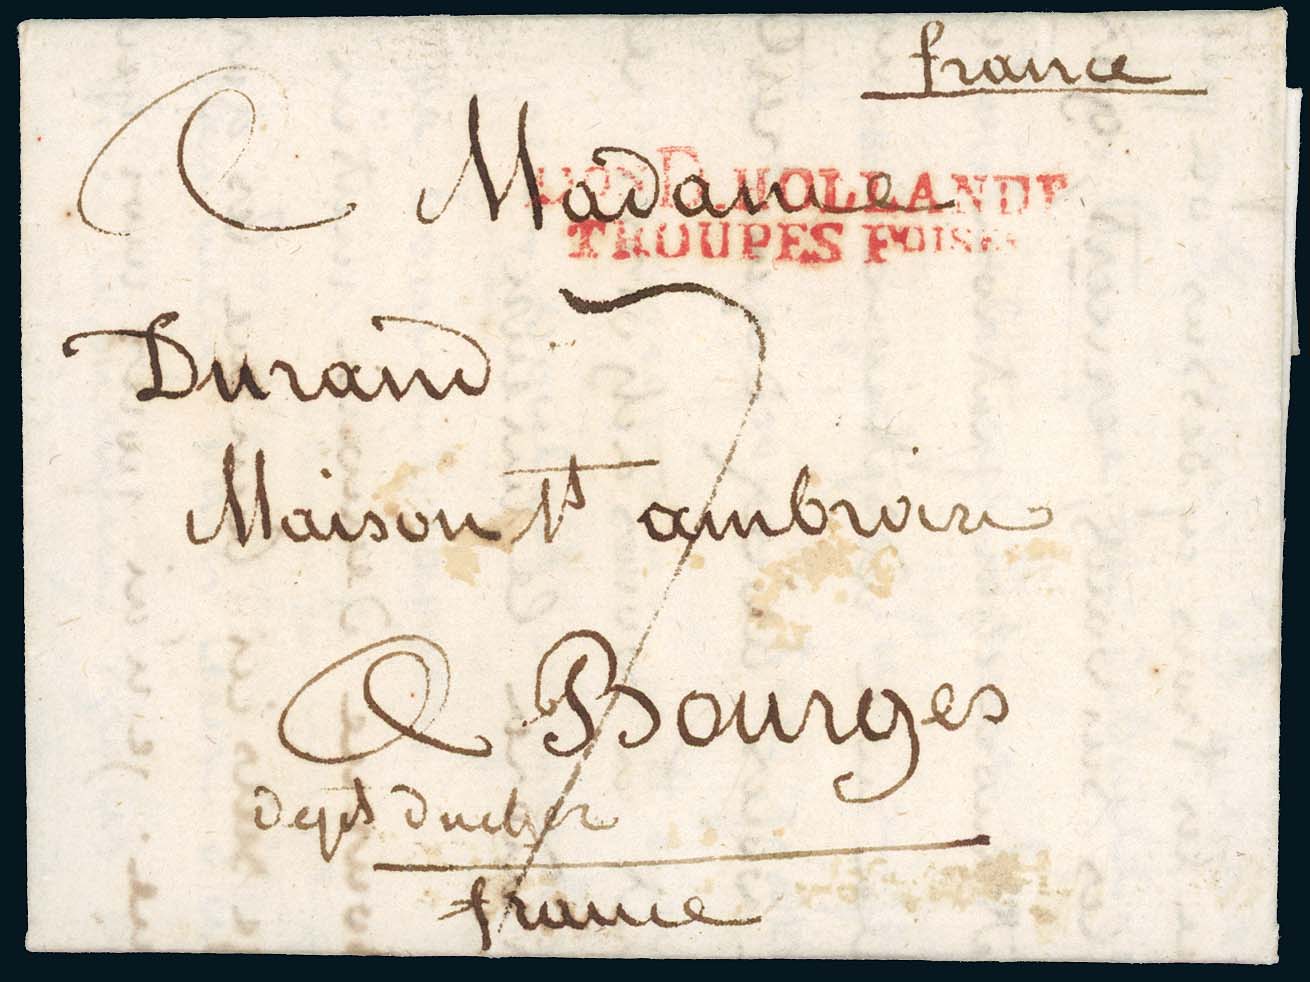 france
A Madame
D. HOLLANDE
TROUPES FOISES
7
Durand
Maison st ambroix
A Bourges
dept ducher
france